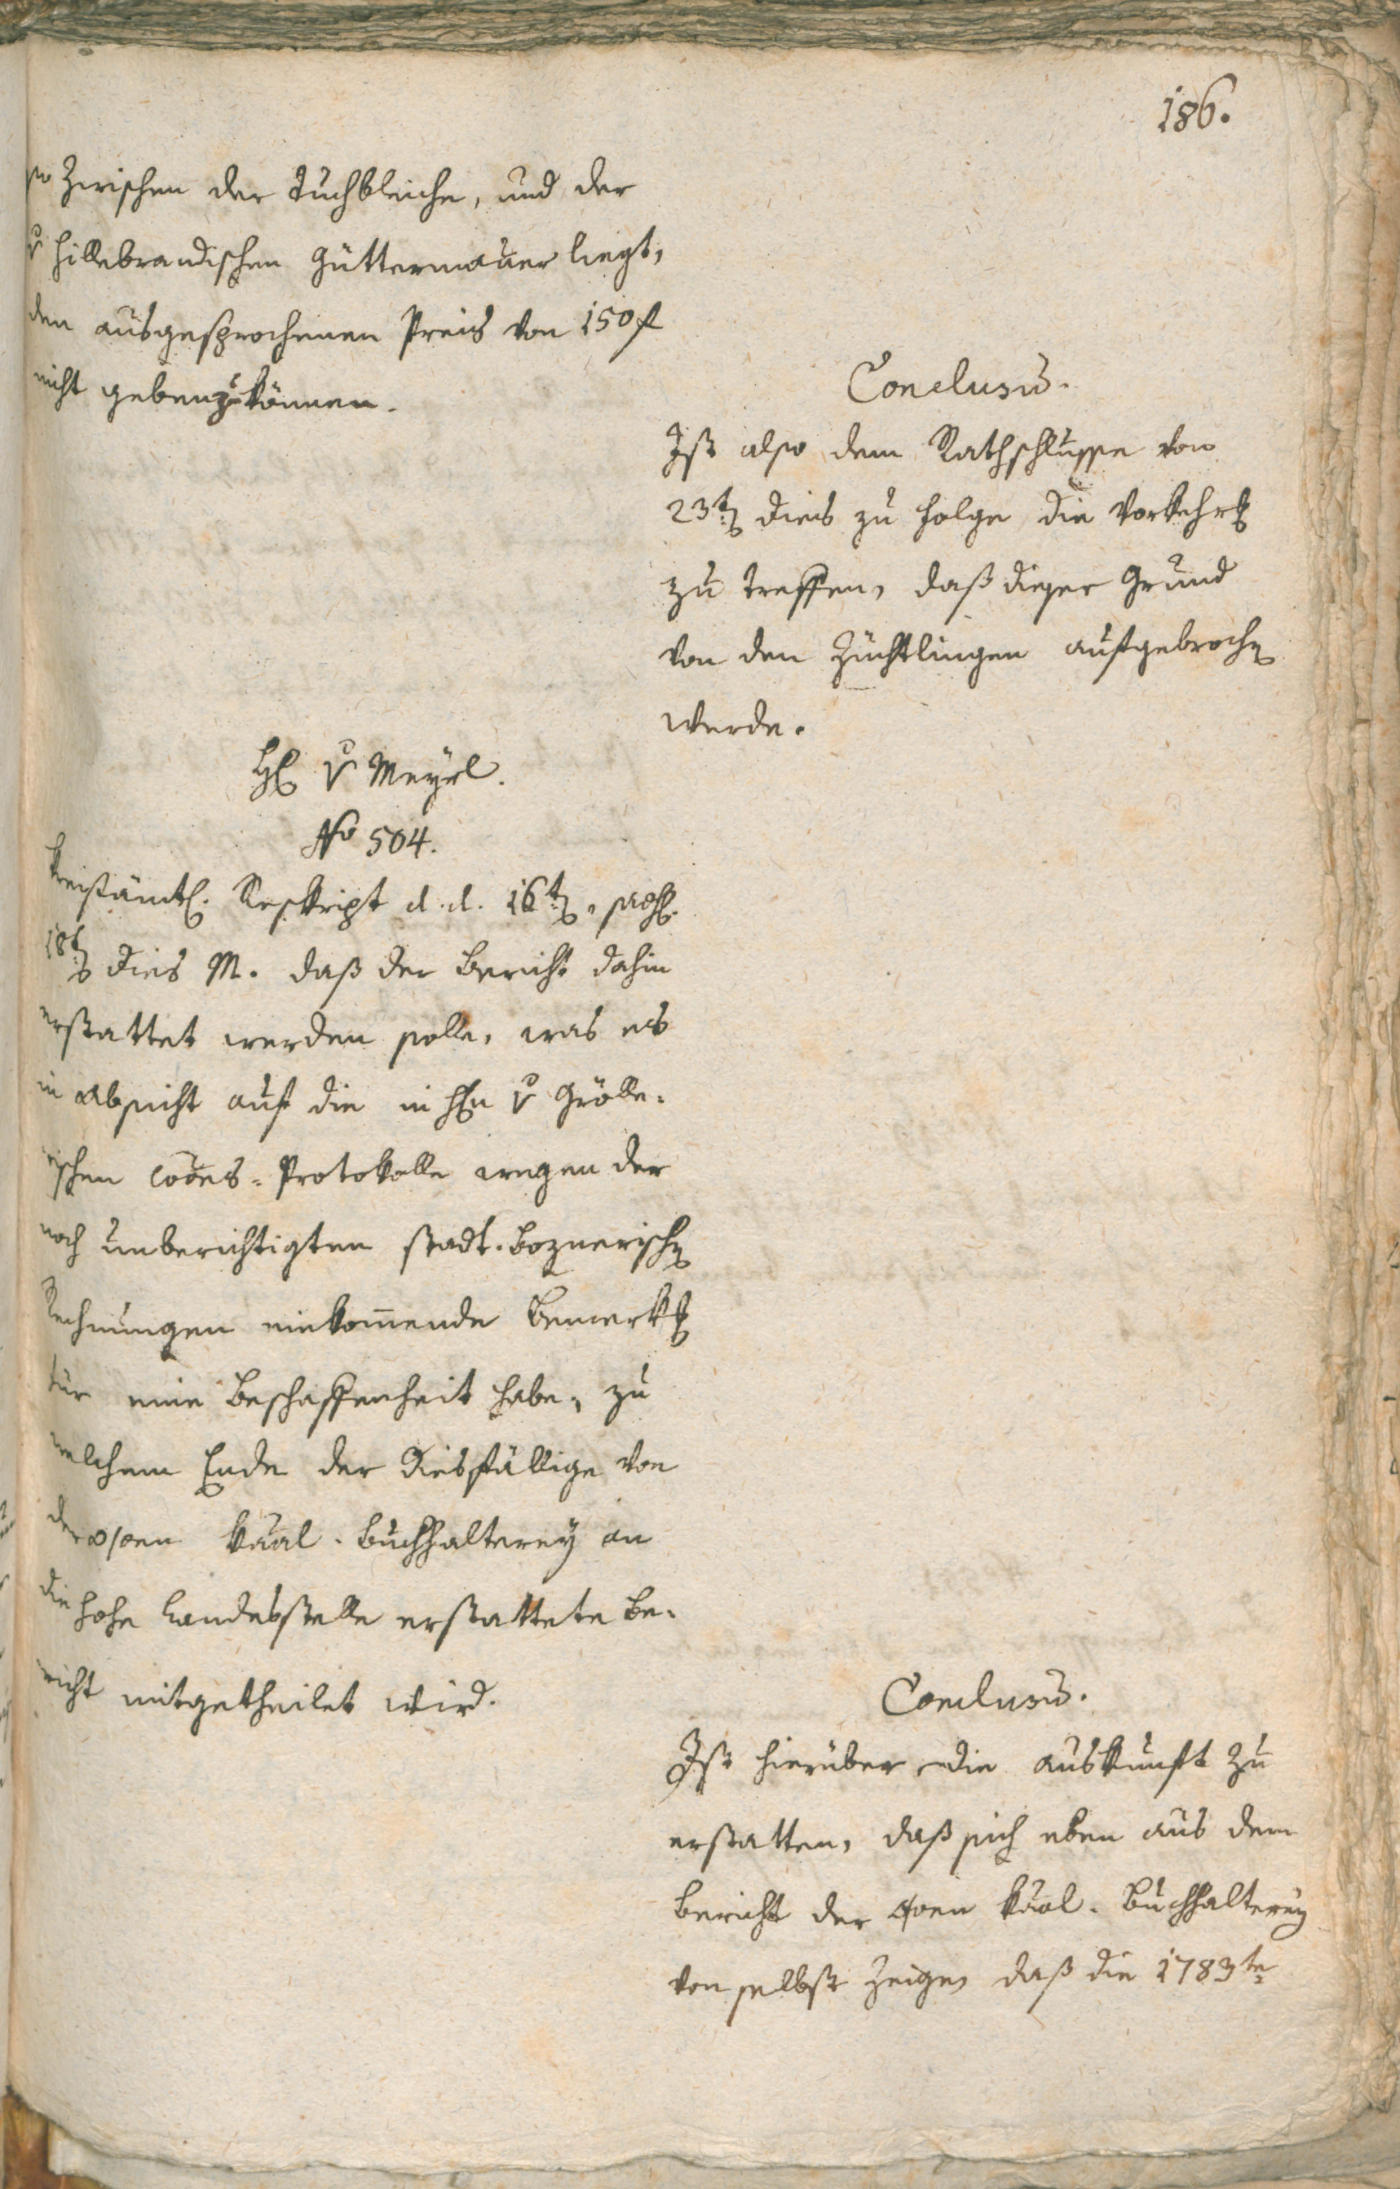 186.
so zwischen der Tuchbleiche, und der
v Hillebrandischen Güttermauer liegt,
den ausgesprochenen Preis von 150 f
nicht geben zu können.
Conclusū.
Ist also dem Rathschlusse von
23t dies zu folge die Vorkehrg
zu treffen, daß dieser Grund
von den Züchtlingen aufgebrochen
werde.
H v Meyrl.
No 504.
Kreisämtl. Reskript d. d. 16t,
18t dies M. daß der Bericht dahin
erstattet werden solle, was es
in Absicht auf die in Hn v Gröller-
ischen Coōns-Protokolle wegen der
noch unberichtigten stadt-boznerischen
Rechnungen einkom̄ende Bemerkg
für eine Beschaffenheit habe, zu
welchem Ende der diesfällige von
der Kaāl-Buchhalterey an
die hohe Landesstelle erstattete Be-
richt mitgetheilet wird.
Conclusū.
Ist hierüber die Auskunft zu
erstatten, daß sich eben aus dem
Bericht der Kaāl-Buchhalterey
von selbst zeige, daß die 1783te